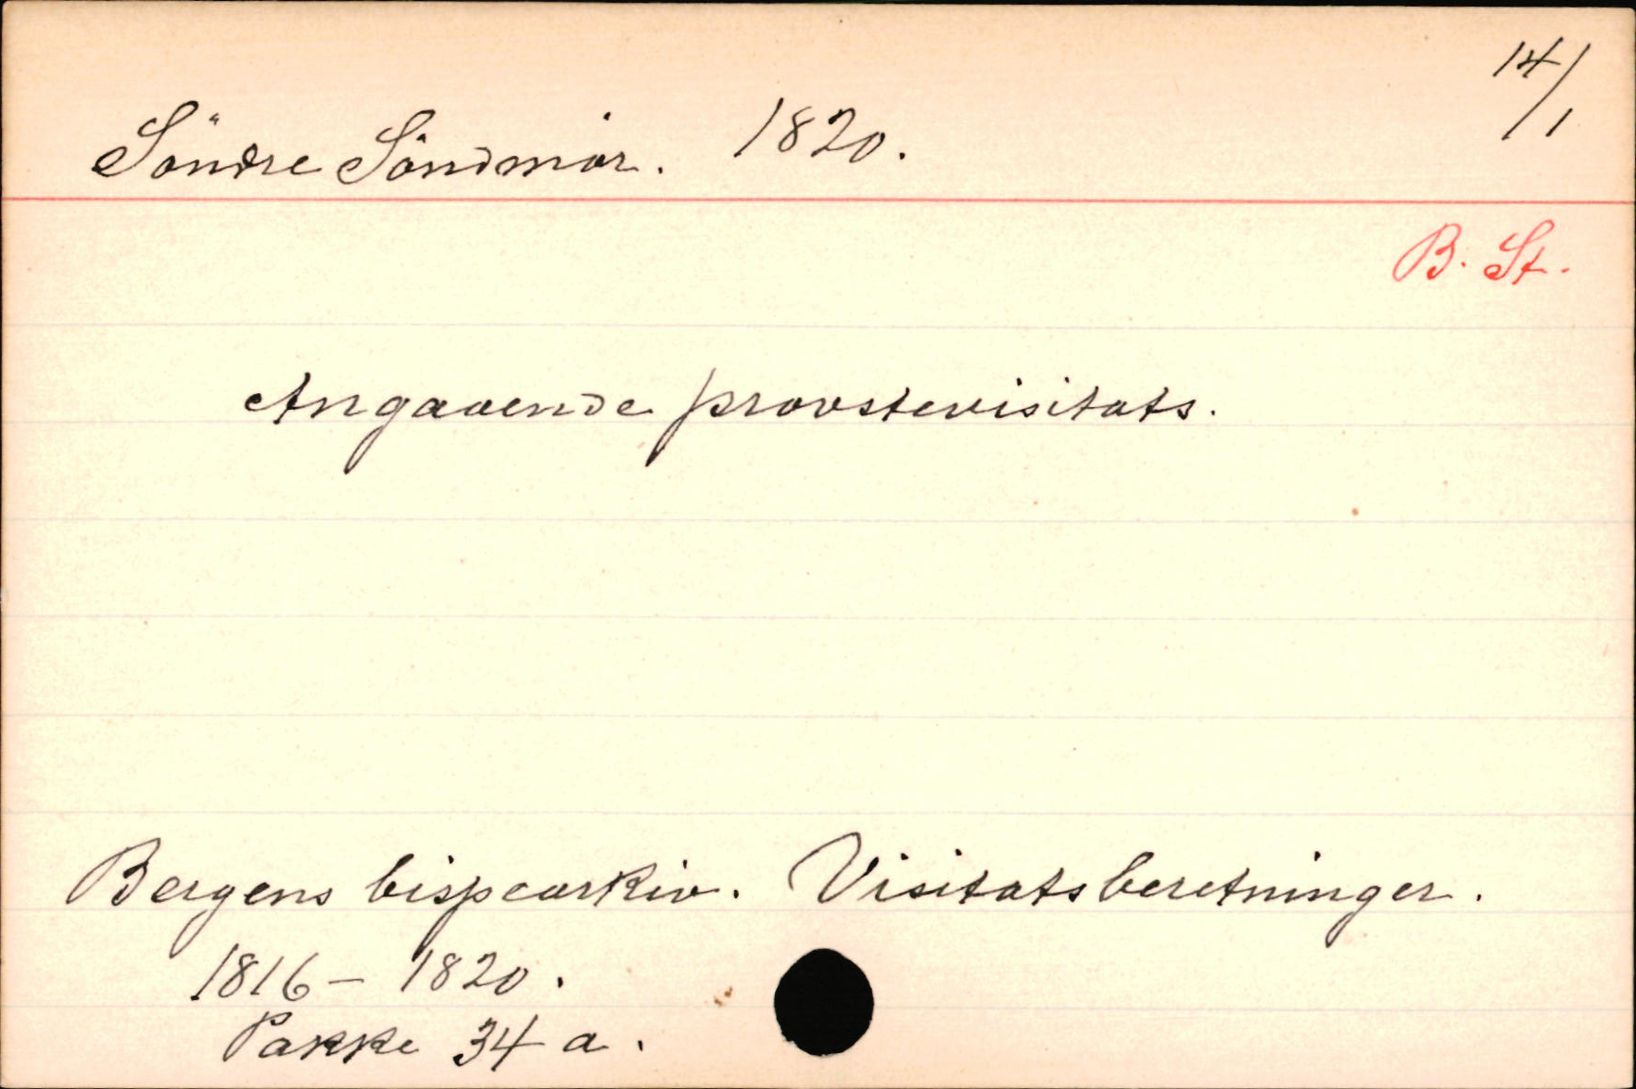 Söndre Söndmör. 1820. 14/1
B. St.
Angaaende provstevisitats.
Bergens bispearkiv. Visitatsberetninger.
1816 - 1820.
Pakke 34 a.